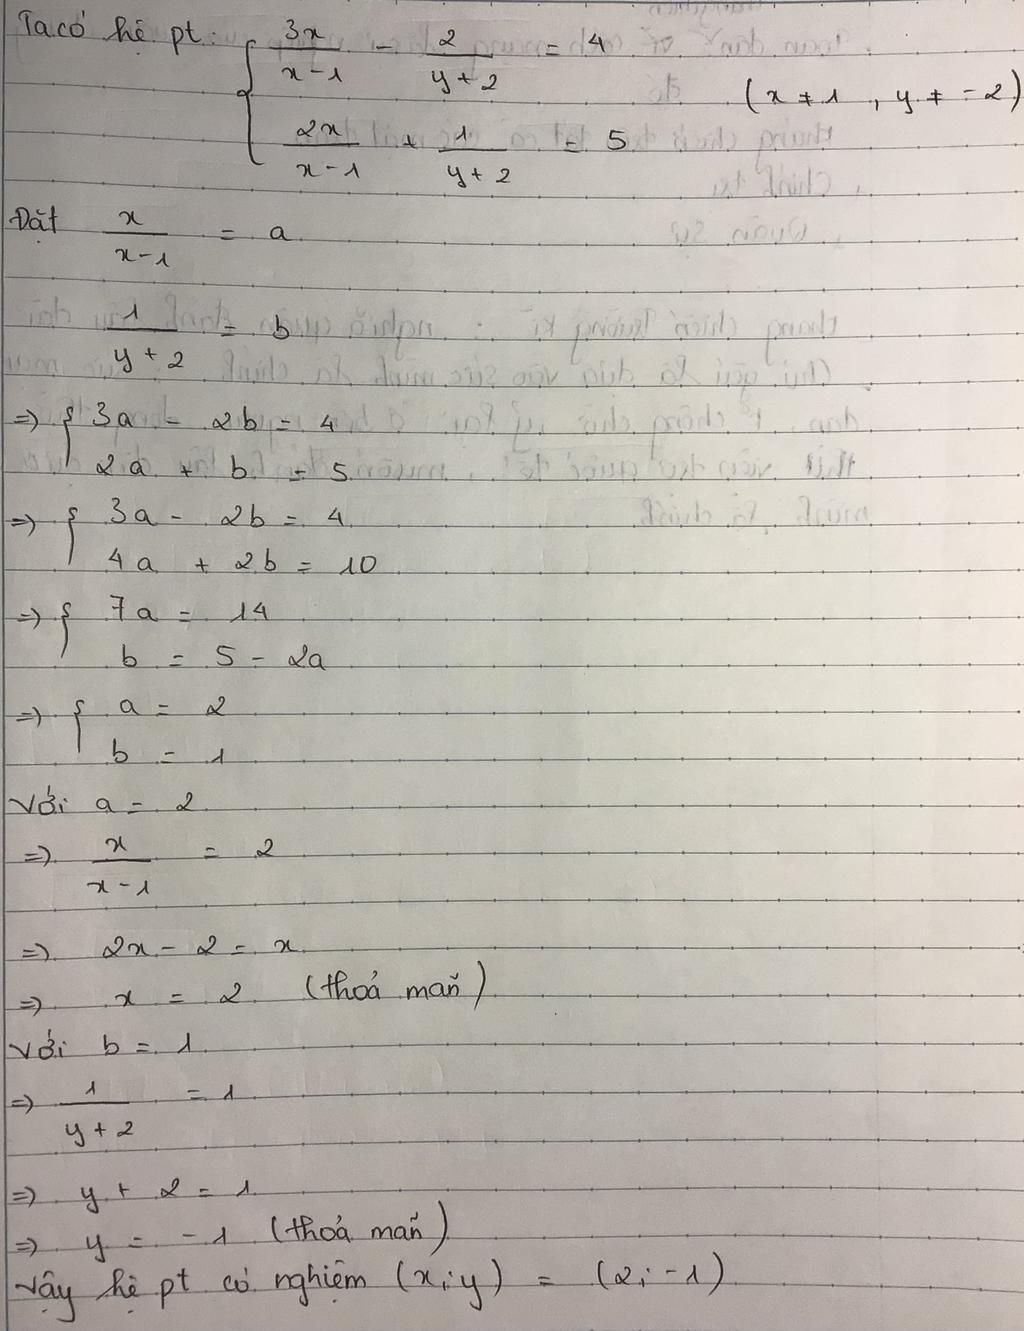 Ta có hệ pt: { 3x/(x-1) - 2/(y+2) = 4
(x ≠ 1, y ≠ -2)
2x/(x-1) + 1/(y+2) = 5
Đặt x/(x-1) = a
1/(y+2) = b
=> { 3a - 2b = 4
2a + b = 5
=> { 3a - 2b = 4
4a + 2b = 10
=> { 7a = 14
b = 5 - 2a
=> { a = 2
b = 1
Với a = 2
=> x/(x-1) = 2
=> 2x - 2 = x
=> x = 2 (thoả mãn)
Với b = 1
=> 1/(y+2) = 1
=> y + 2 = 1
=> y = -1 (thoả mãn)
Vậy hệ pt có nghiệm (x;y) = (2;-1)